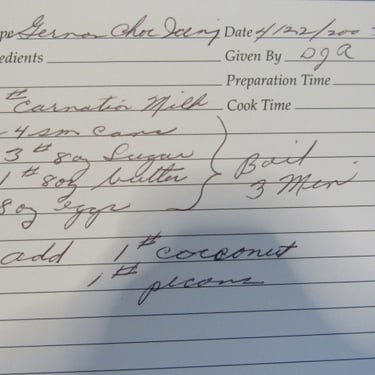 pe German Choc Icing Date 4/22/200
edients Given By Dga
Preparation Time
# Carnation Milk Cook Time
-4 sm cans
3 # 8 oz Sugar
1 # 8 oz butter Boil
8 oz eggs 3 Min
add 1 # cocoonut
1 # pecans